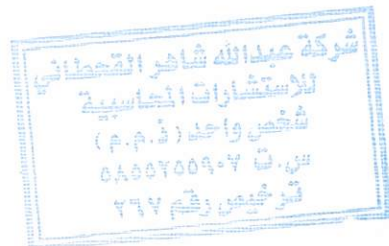 شركة عبدالله شاهر القحطاني
للاستشارات المحاسبية
شخص واحد (ذ.م.م)
س.ت ٥٨٥٥٣٥٥٩٠٧
ترخيص رقم ٢٩٧